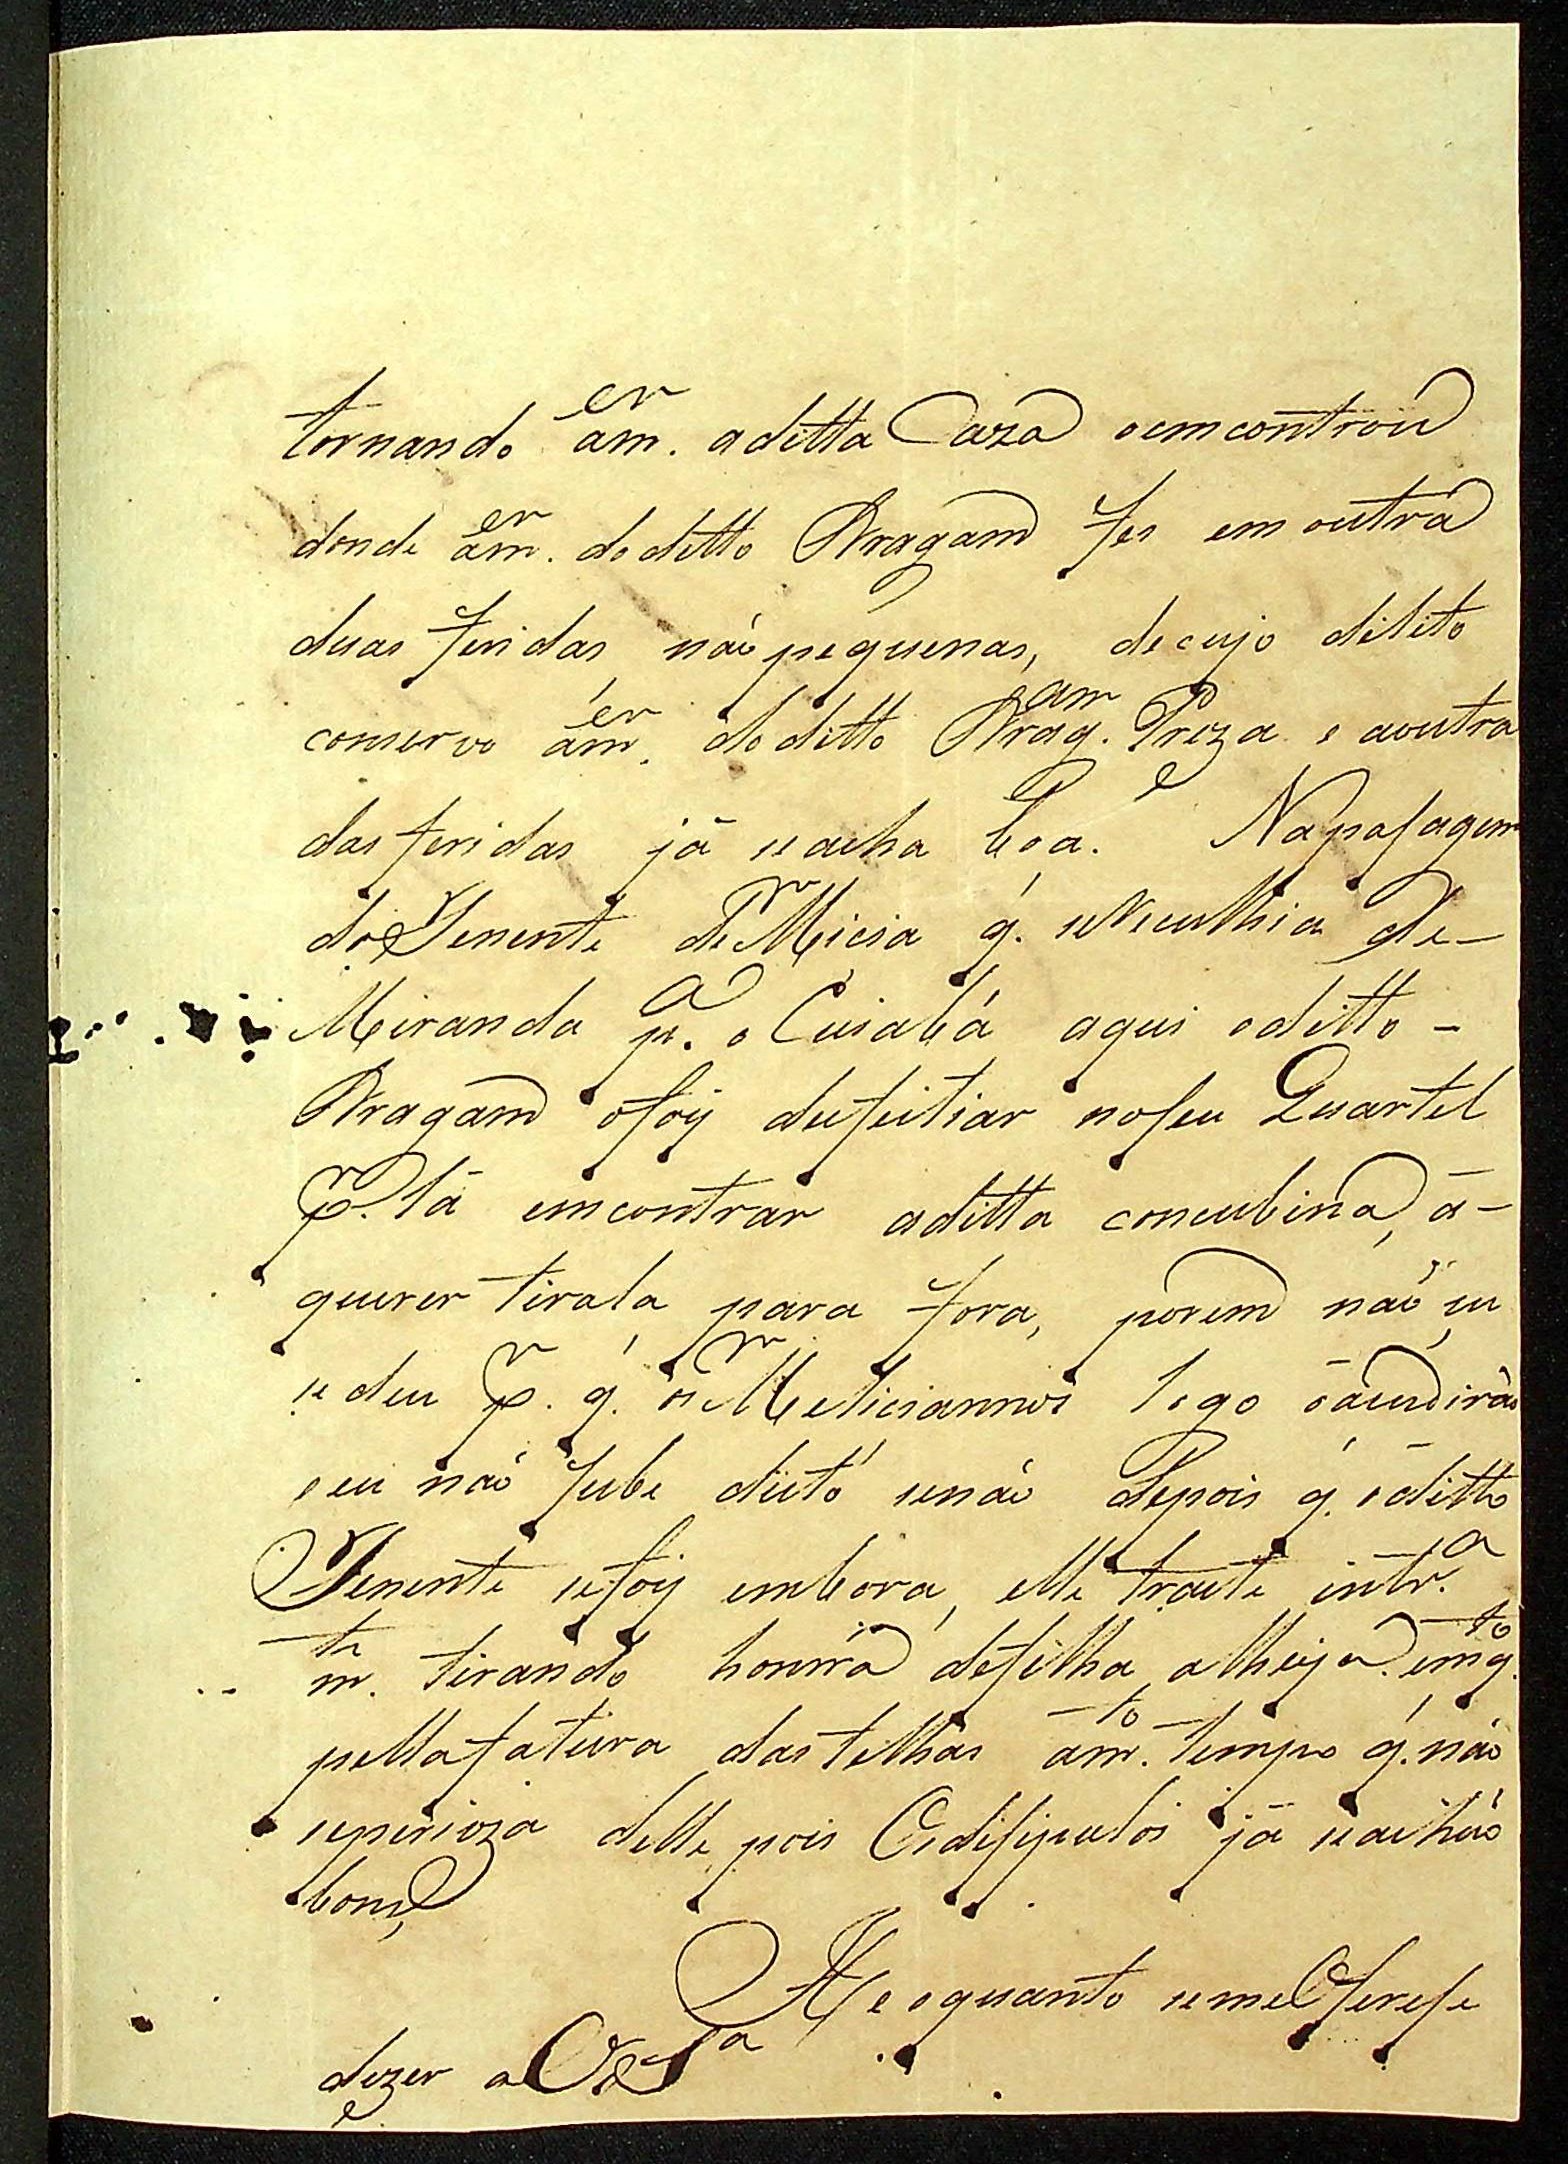 tornando am.er aditta Caza oemcontrou
donde am.er do ditto Dragam fes em outra
duas feridas nâo pequenas, de cujo dilito
conservo am.er do ditto Drag.am Preza e aoutra
das feridas já se acha boa. Napasagem
do Tenente de Micia q. se Recolhia de
Miranda p.a o Cuiabá aqui oditto
Dragam ofoy desfeitiar noseu Quartel
P.r lá emcontrar aditta concubina, a
querer tirala para fora, porem naô su
sedeu P.r q. os Meliciannos logo acudirâo
e eu naô sube disto senâo depois q. oditto
Tenente sefoy embora, elle traete intr.a
m.te tirando honrra defilha alheya. emq.to
pella fatura das telhas am.to tempo q. nâo
seperioza delle pois Osdisipulos já se achâo
bons,
He oquanto seme Oferese
dezer a VS.a